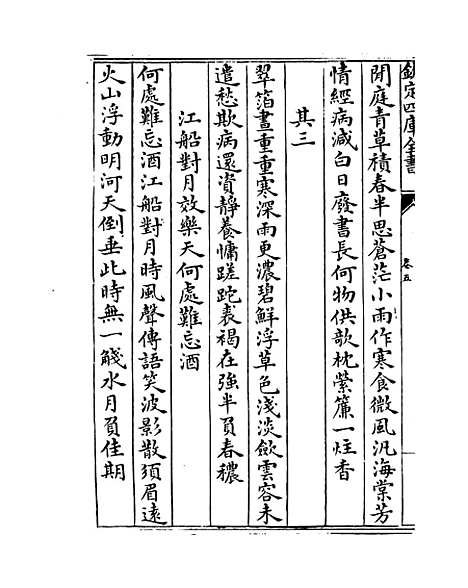 欽定四庫全書
卷五
閒庭青草積春半思蒼茫小雨作寒食微風汎海棠芳
情經病減白日廢書長何物供欹枕縈簾一炷香
其三
翠箔晝重重寒深雨更濃碧鮮浮草色淺淡斂雲容未
遣愁欺病還資靜養慵蹉跎裘褐在強半負春穠
江船對月效樂天何處難忘酒
何處難忘酒江船對月時風聲傳語笑波影散須眉遠
火山浮動明河天倒垂此時無一醆水月負佳期